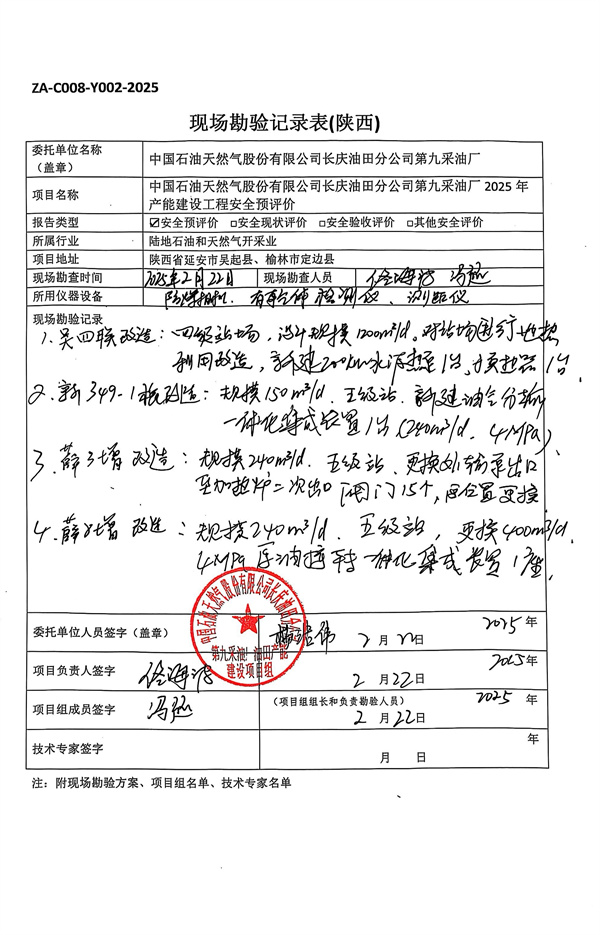 ZA-C008-Y002-2025
现场勘验记录表(陕西)
委托单位名称
（盖章）
中国石油天然气股份有限公司长庆油田分公司第九采油厂
项目名称
中国石油天然气股份有限公司长庆油田分公司第九采油厂 2025 年
产能建设工程安全预评价
报告类型
☑安全预评价 □安全现状评价 □安全验收评价 □其他安全评价
所属行业
陆地石油和天然气开采业
项目地址
陕西省延安市吴起县、榆林市定边县
现场勘查时间
2025年2月22日
现场勘查人员
冯
所用仪器设备
防爆相机、有毒气体检测仪、测距仪
现场勘验记录
1、吴四联改造：四级站场，设计规模1200m³/d。对站场进行
利用改造，新建200kW水源热泵1台、换热器1台
2、新349-1 改造：规模150m³/d、五级站、新建油气分输
一体化集成装置1台(240m³/d、4MPa)
3、薛 增改造：规模240m³/d、五级站、更换外输泵出口
至加热炉二次出口阀门15个，同位置更换
4、薛 增改造：规模240m³/d、五级站，更换400m³/d、
4MPa 原油接转一体化集成装置1座
委托单位人员签字（盖章）
2025
2 月 22日
中国石油天然气股份有限公司长庆油田分公司
第九采油厂油田产能
建设项目组
项目负责人签字
2025年
2 月 22日
项目组成员签字
冯
（项目组组长和负责勘验人员）
2025 年
2 月 22日
技术专家签字
年
月 日
注：附现场勘验方案、项目组名单、技术专家名单